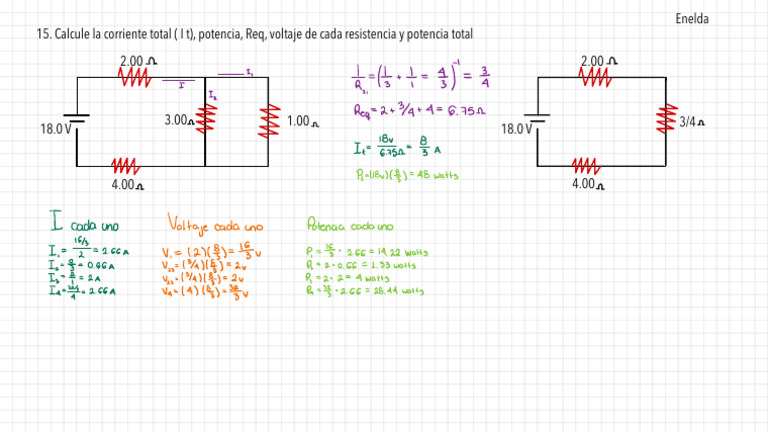 Enelda
15. Calcule la corriente total ( I t), potencia, Req, voltaje de cada resistencia y potencia total
2.00 Ω
I
I₁
I₂
3.00Ω
1.00 Ω
18.0 V
4.00Ω
1/R₂₁ = (1/3 + 1/1 = 4/3)⁻¹ = 3/4
Req = 2 + 3/4 + 4 = 6.75Ω
It = 18v/6.75Ω = 8/3 A
Pt=(18v)(8/3) = 48 watts
2.00 Ω
18.0 V
3/4 Ω
4.00 Ω
I cada uno
I₁ = 16/3/2 = 2.66A
= 0.66A
= 2A
= 2.66A
Voltaje cada uno
V₁ = (2)(8/3) = 16/3 v
V₂₃ = (3/4)(8/3) = 2v
V₂₃ = (3/4)(8/3) = 2v
V₄ = (4)(8/3) = 32/3 v
Potencia cada uno
P₁ = 16/3 · 2.66 = 14.22 watts
P = 2 · 0.66 = 1.33 watts
P₃ = 2 · 2 = 4 watts
P₄ = 32/3 · 2.66 = 28.44 watts